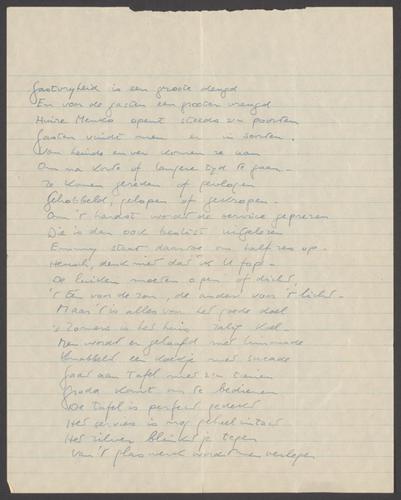 Gastvrijheid is een groote deugd
En voor de gasten een grooten vreugd
Huize Menko opent steeds zn poorten
Gasten vindt men er in soorten.
Van heinde en ver komen ze aan
Om na korte of langere tijd te gaan -
Ze komen gereden of gevlogen
Gehobbeld, gelopen of gekropen -
Om 't hardst wordt de service geprezen
Die is dan ook beslist uitgelezen
Emmy staat daarvoor om half zes op -
Heusch, denk niet dat ik U fop -
De luiken moeten open of dicht,
't een voor de zon, de ander voor 't licht -
Maar 't is alles voor het goede doel
's Zomers is het huis zalig koel -
Men wordt er gelaafd met limonade
Knabbelt een koekje met sucade
Gaat aan tafel met zn
Groda komt om te bedienen
De tafel is perfect gedekt
Het servies is nog geheel intact
Het zilver blinkt je tegen
Van 't glaswerk wordt men verlegen